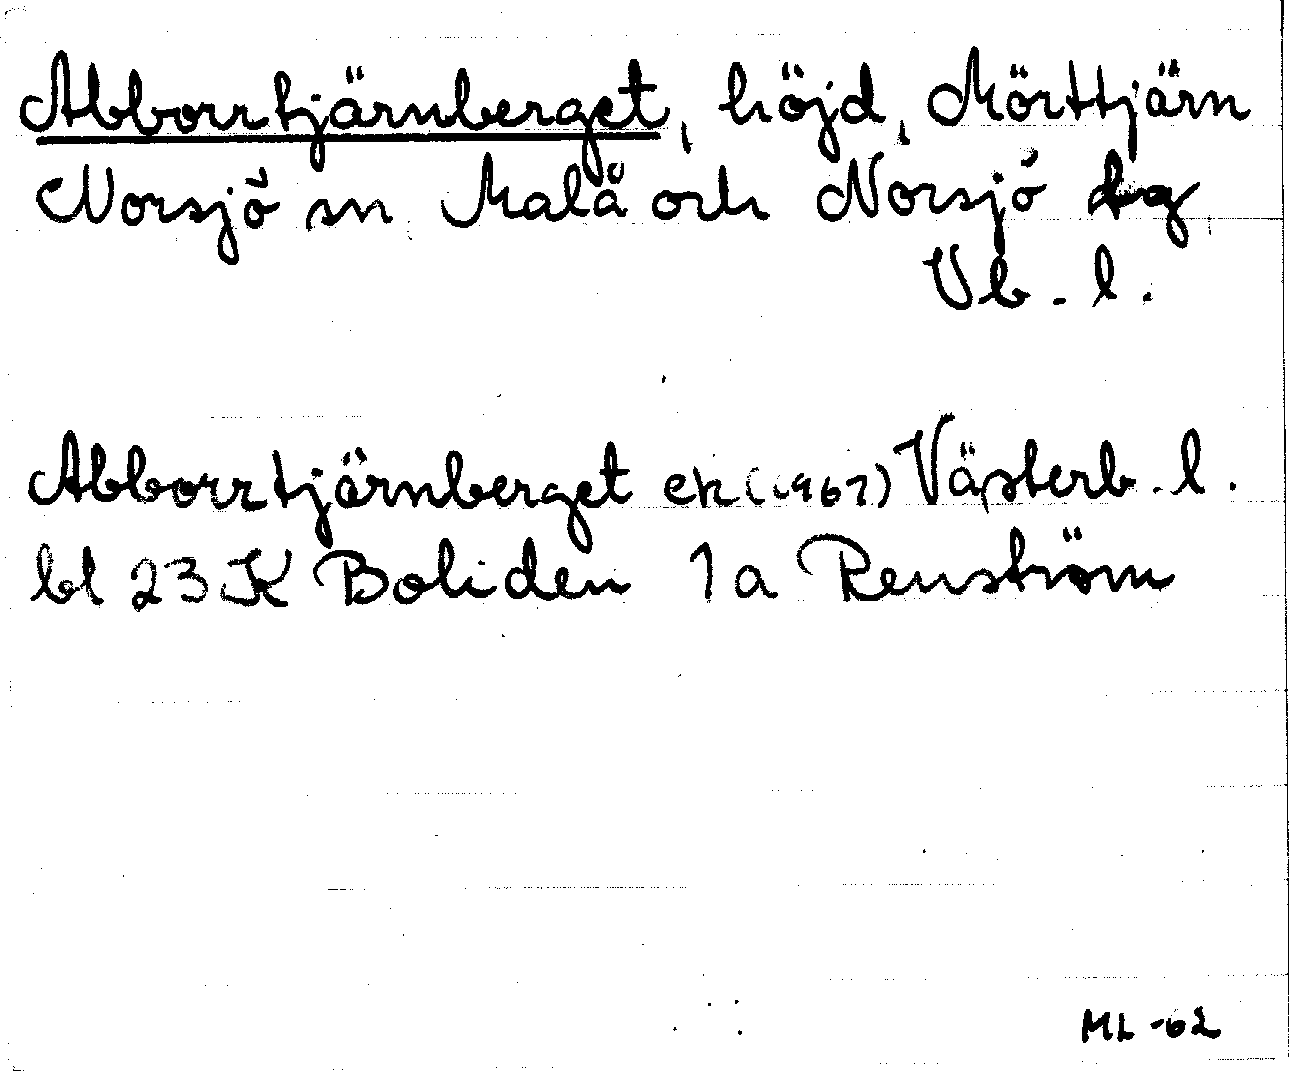 Abborrtjärnberget, höjd, Mörttjärn
Norsjö sn Malå och Norsjö lg
Vb. l.
Abborrtjärnberget ek (1967) Västerb. l.
bl 23 K Boliden 1a Renström
ML -62